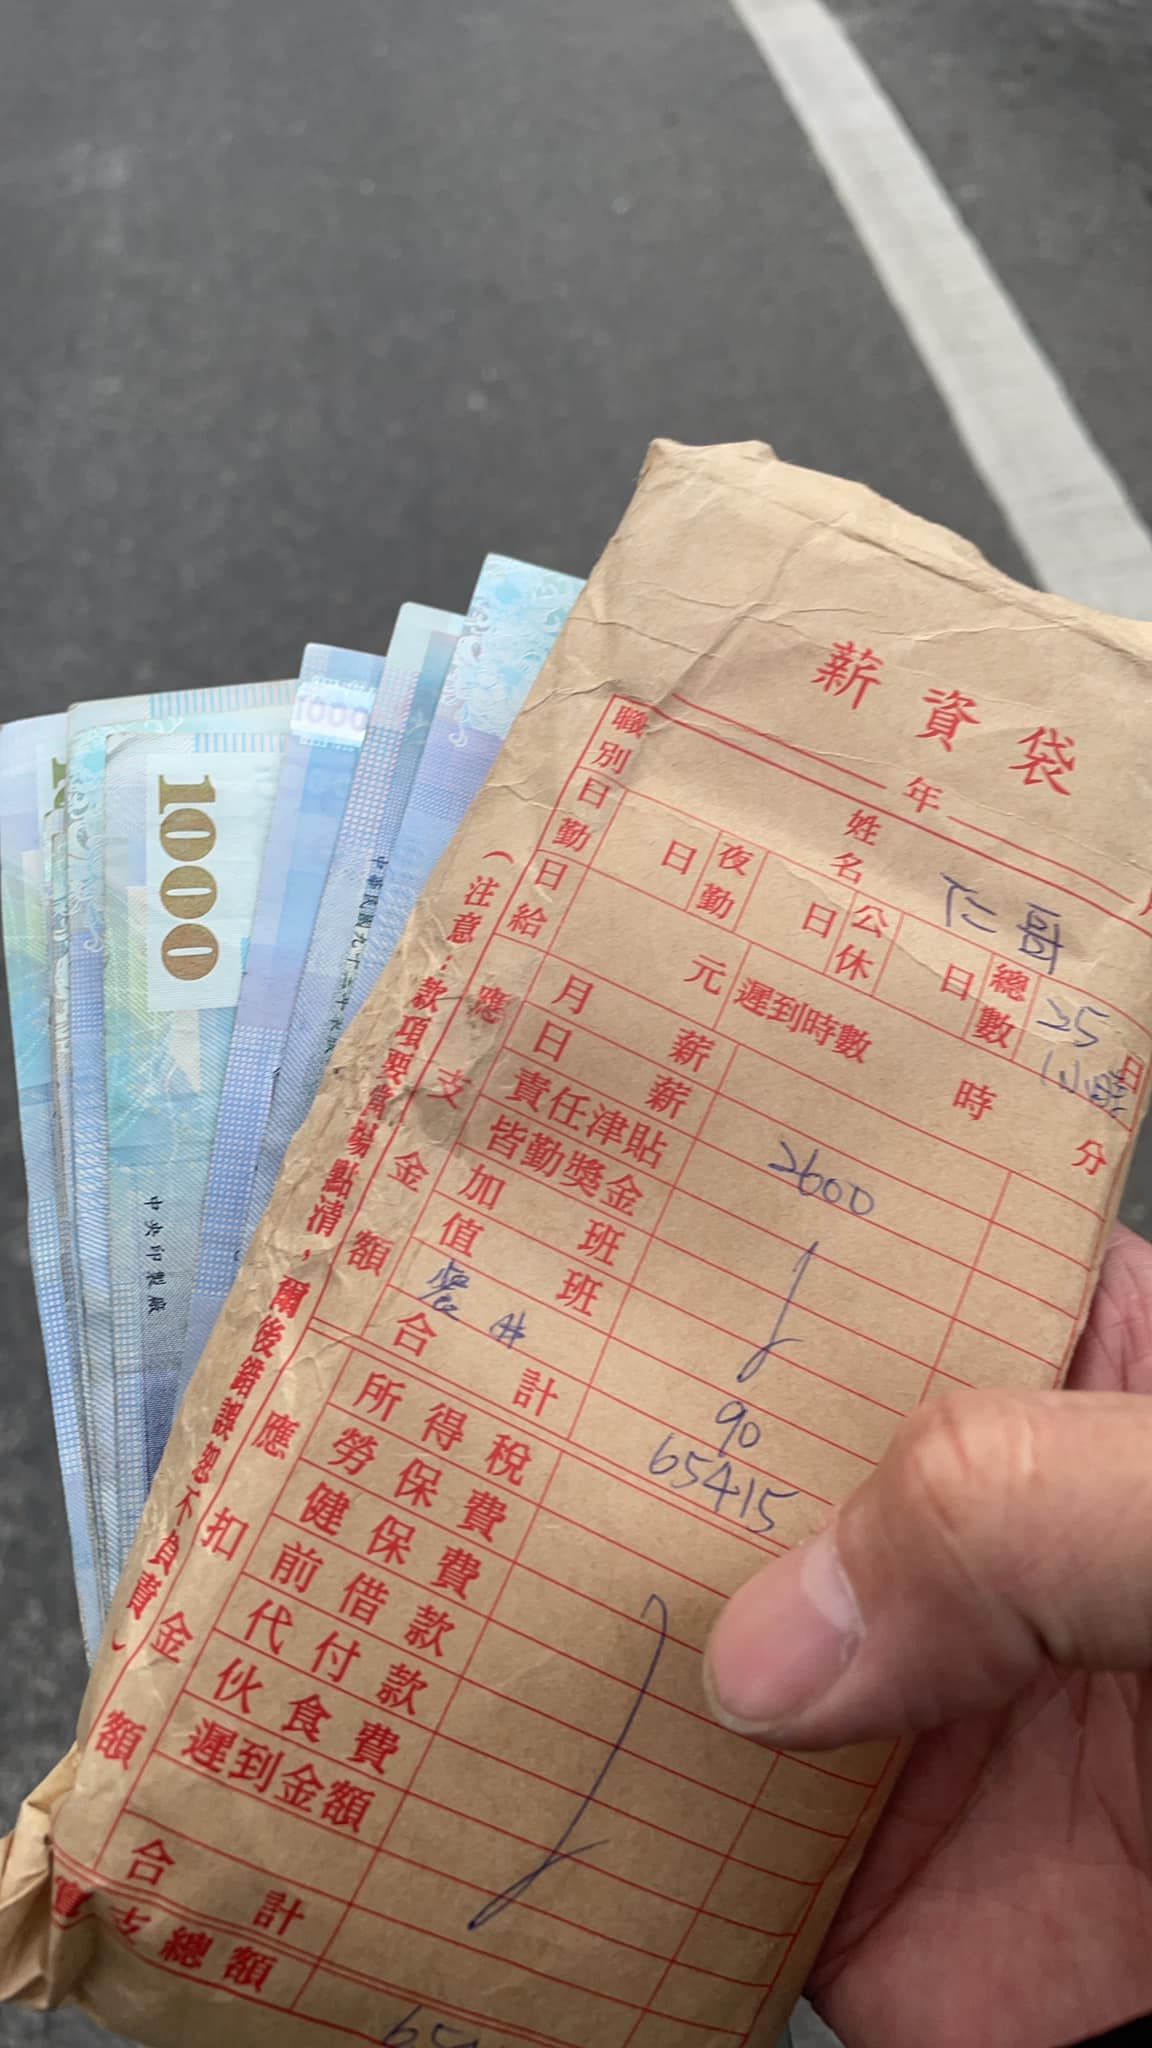 薪資袋
年
職別
姓名 仁哥
日勤 日 夜勤 日 公休 日 總數 25 日
1小時
日給 元 遲到時數 時 分
應支金額
月薪
日薪 2600
責任津貼
皆勤獎金
加班
值班
90
合計 65415
應扣金額
所得稅
勞保費
健保費
前借款
代付款
伙食費
遲到金額
合計
實支總額
(注意:款項要當場點清,爾後錯誤恕不負責)
1000
1000
中央印製廠